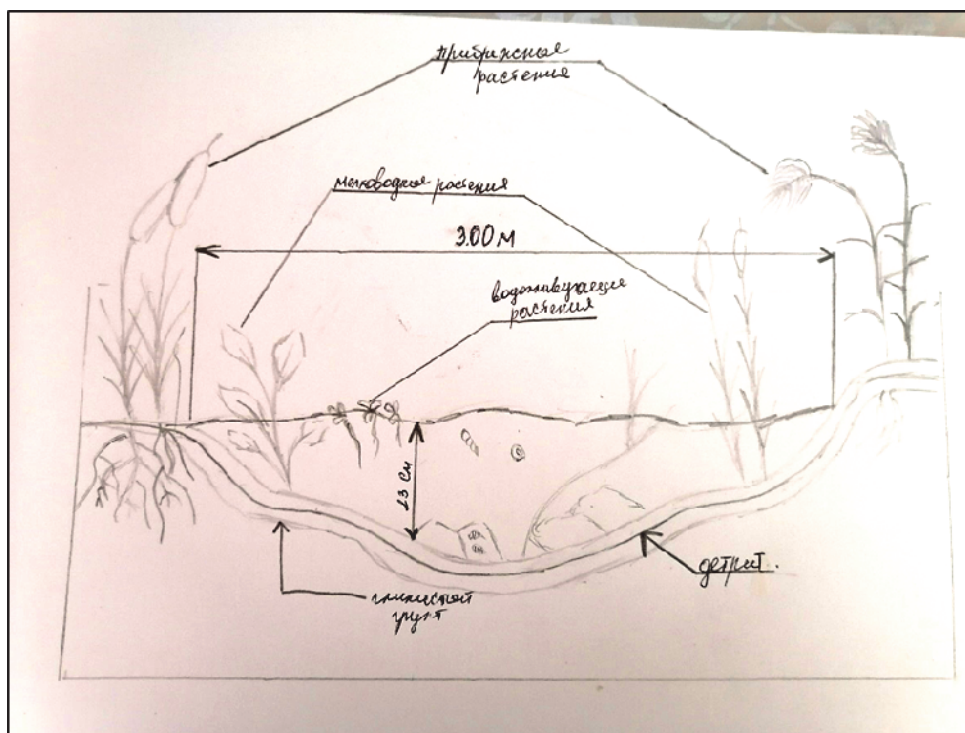 прибрежные
растения
мелководные растения
3.00 м
водоплавующие
растения
23 см
детрит.
глинистый
грунт